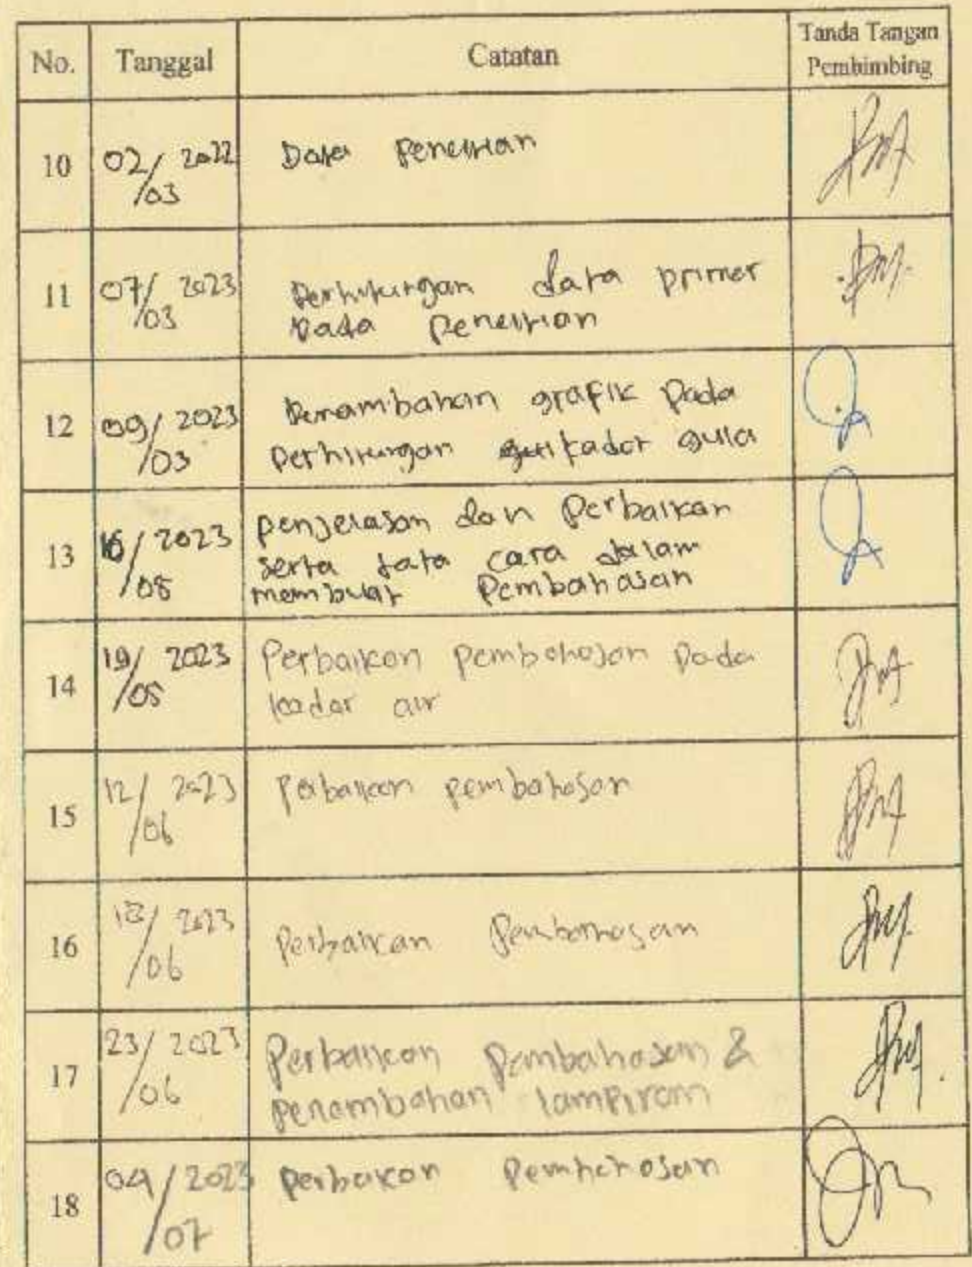 No. Tanggal Catatan Tanda Tangan Pembimbing
10 02/03 2022 Data Penelitian
11 07/03 2023 Perhitungan data primer
pada penelitian
12 09/03 2023 Penambahan grafik pada
perhitungan kadar gula
13 16/05 2023 penjelasan dan Perbaikan
serta tata cara dalam
membuat Pembahasan
14 19/05 2023 Perbaikan pembahasan pada
kadar air
15 12/06 2023 Perbaikan pembahasan
16 2023/06 Perbaikan Pembahasan
17 23/06 2023 Perbaikan Pembahasan &
penambahan lampiran
18 04/07 2023 Perbaikan Pembahasan